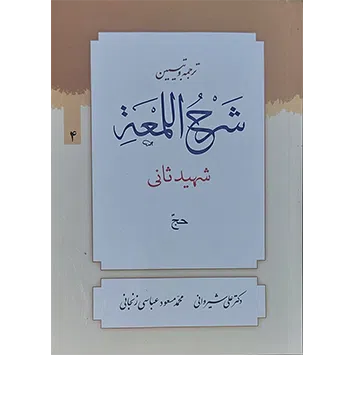 ترجمه و تبیین
شَرحُ اللمعَةِ
۴
شهید ثانی
حجّ
دکتر علی شیروانی محمد مسعود عباسی زنجانی